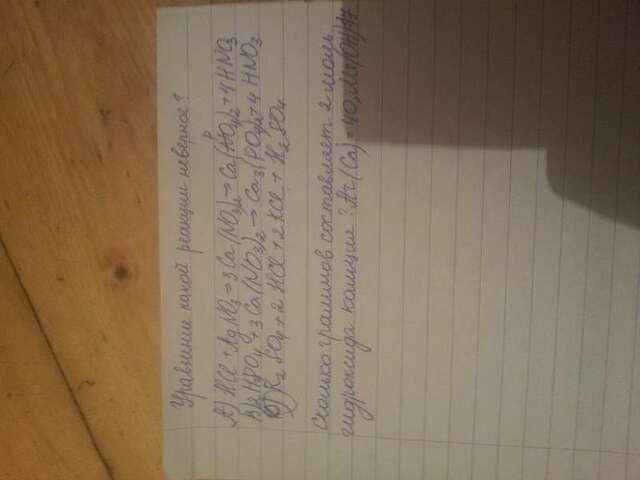 Уравнение какой реакции неверное?
А) HCl + AgNO3 → 3Ca(NO3)2 → Ca(PO4)2 + 4HNO3
Б) 2H3PO4 + 3Ca(NO3)2 → Ca3(PO4)2 + 4HNO3
В) K2SO4 + 2HCl + 2KCl + H2SO4
Сколько граммов составляет 2 моль
гидроксида кальция? Ar(Ca)=40,